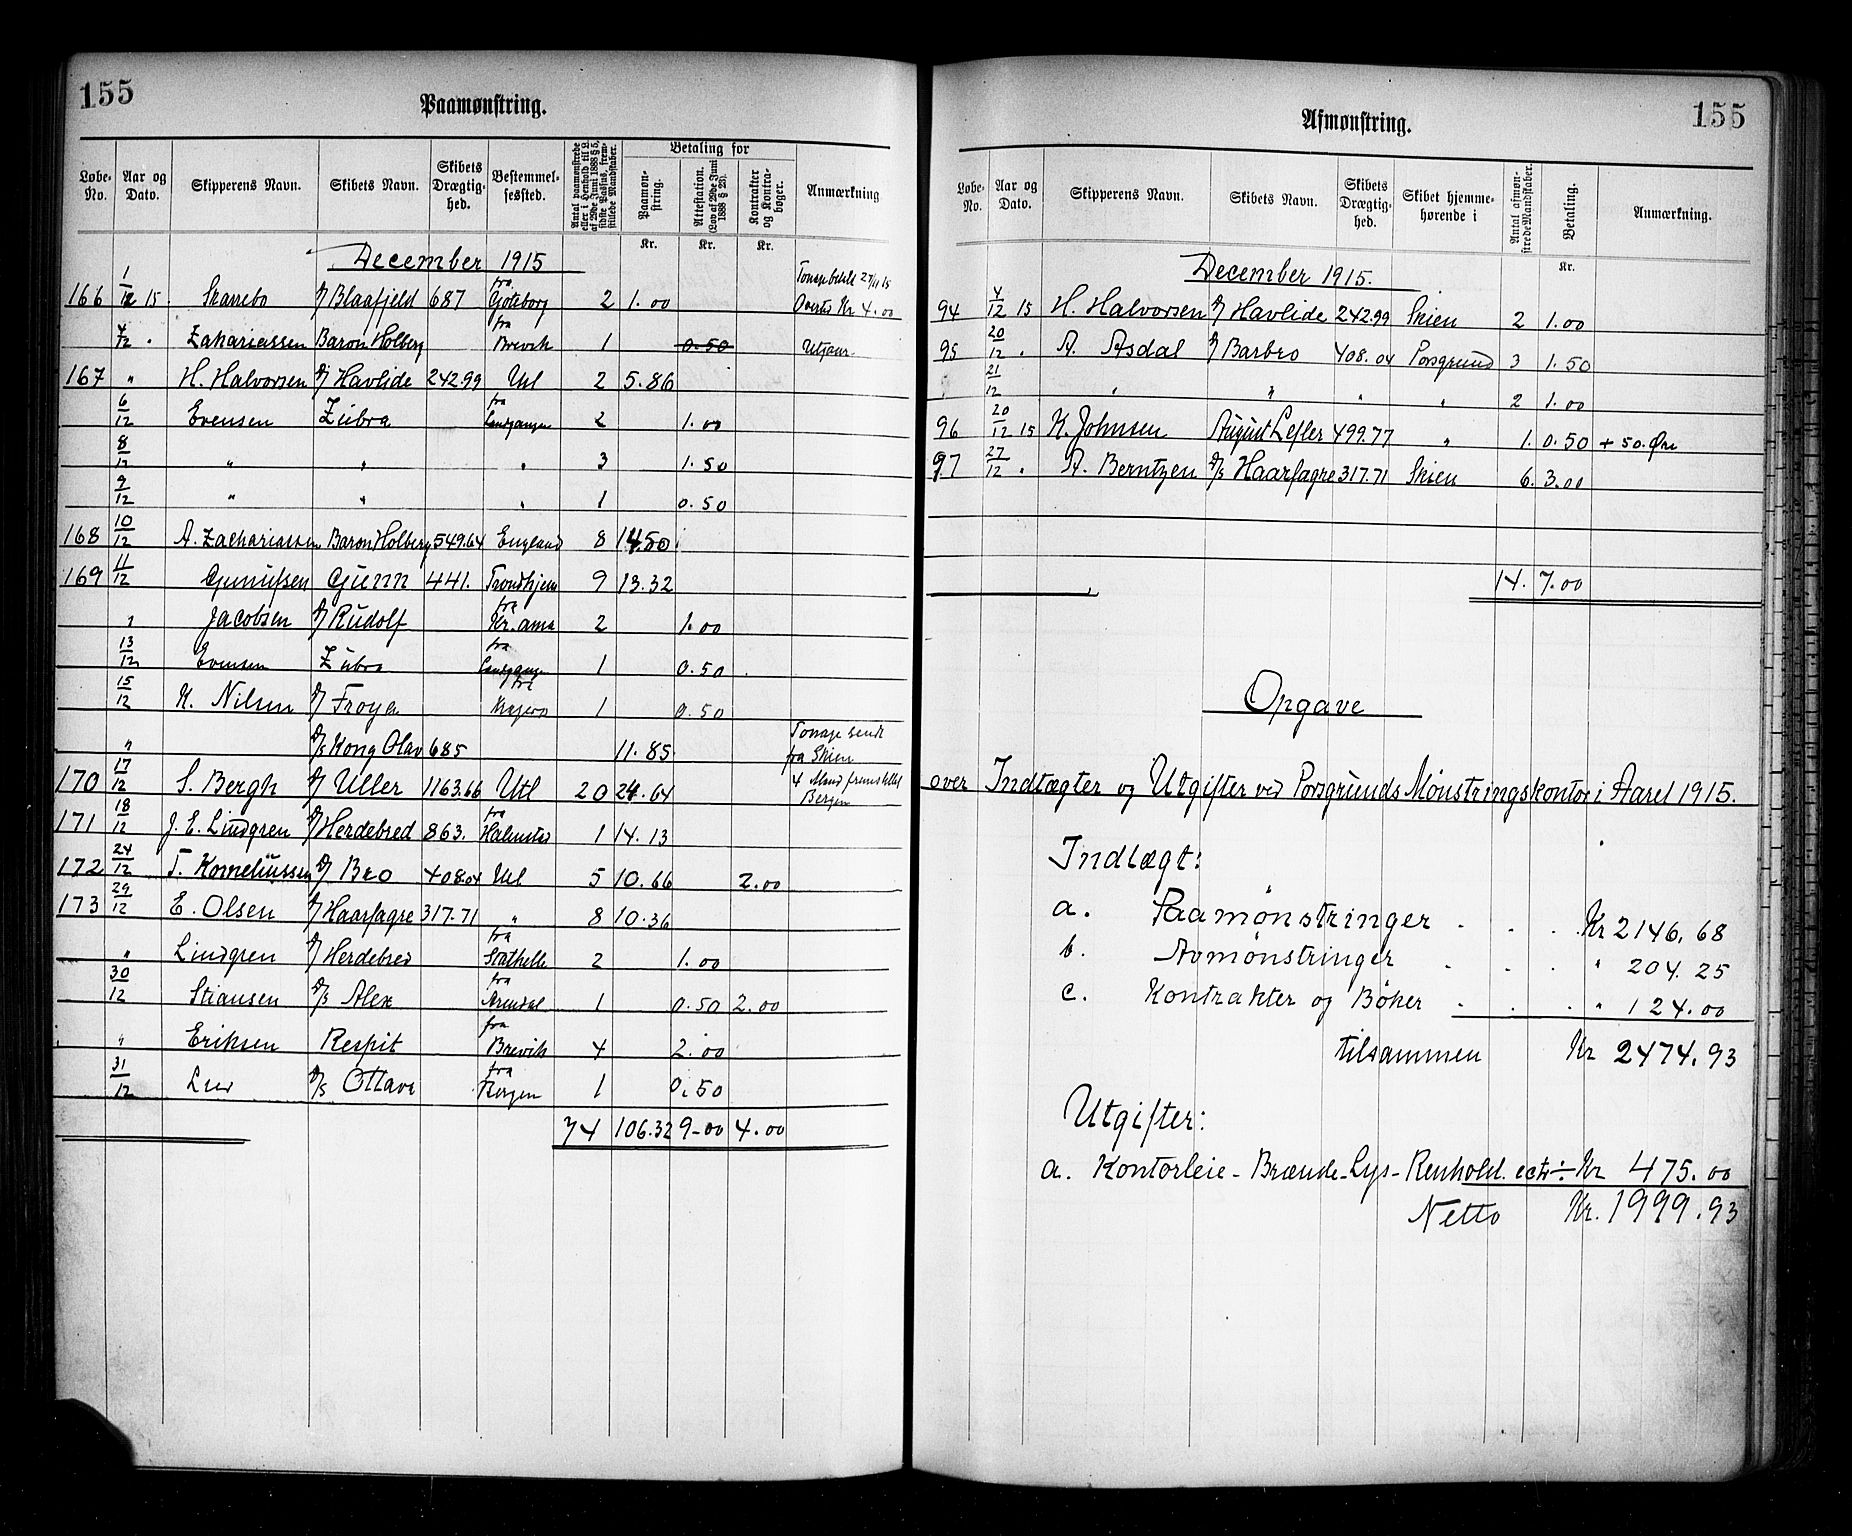 155
Paamønstring.
Løbe-No. | Aar og Dato. | Skipperens Navn. | Skibets Navn. | Skibets Drægtig-hed. | Bestemmel-sessted. | Antal paamønstrede eller i Henhold til L. af 29de Juni 1888 § 5, sidste Passus, frem-stillede Mandskaber. | Betaling for | Paamøn-string. Kr. | Attestation. (Lov af 29de Juni 1888 § 25). Kr. | Kontrakter og Kontra-bøger. Kr. | Anmærkning
December 1915
166 1/12 15. Skarrebo Blaafjeld 687 fra Göteborg 2 1.00 Overts Kr 4.00
4/12 " Zakariassen Baron Holberg fra Brevik 1 0.50
167 " H. Halvorsen Havlide 242.99 Utl 2 5.86
6/12 Evensen Zubra fra Langangen 2 1.00
8/12 " " " 3 1.50
9/12 " " " 1 0.50
168 10/12 A. Zachariassen Baron Holberg 549.64 England 8 14.50
169 11/12 Gunn 441. Trondhjem 9 13.32
" Jacobsen Rudolf fra Kr.ania 2 1.00
13/12 Evensen Zubra fra Langangen 1 0.50
15/12 K. Nilsen Froya til Kragerø 1 0.50
" D/S Kong Olav 685 11.85 Tonage sendt fra Skien
170 17/12 S. Bergh Uller 1163.66 Utl 20 24.64 4 Mand fremstillet Bergen
171 18/12 J. E. Lindgren Herdebred 863. fra Halmstad 1 14.13
172 24/12 T. Korneliussen Bro 408.04 Utl 5 10.66 2.00
173 29/12 E. Olsen Haarfagre 317.71 " 8 10.36
" Lindgren Herdebred fra Stathelle 2 1.00
30/12 Stiansen D/S Alex fra Arendal 1 0.50 2.00
" Eriksen Respit fra Brevik 4 2.00
31/12 D/S Ottava fra Bergen 1 0.50
74 106.32 9-00 4.00
155
Afmønstring.
Løbe-No. | Aar og Dato. | Skipperens Navn. | Skibets Navn. | Skibets Drægtig-hed. | Skibet hjemme-hørende i | Antal afmøn-strede Mandskaber. | Betaling. Kr. | Anmærkning.
December 1915.
94 4/12 15 H. Halvorsen Havlide 242.99 Skien 2 1.00
95 20/12 " A. Asdal Barbro 408.04 Porsgrund 3 1.50
21/12 " " " " 2 1.00
96 20/12 15 K. Johnsen August Lefler 499.77 " 1. 0.50 + 50. Øre
97 27/12 " A. Berntzen D/S Haarfagre 317.71 Skien 6. 3.00
14. 7.00
Opgave
over Indtægter og Utgifter ved Porsgrunds Mönstringskontor i Aaret 1915.
Indtægt:
a. Paamønstringer . . . Kr 2146.68
b. Avmønstringer . . . " 204.25
c. Kontrakter og Bøker . . . " 124.00
tilsammen Kr 2474.93
Utgifter:
a. Kontorleie - Brænde - Lys - Renhold. ectr ÷ Kr 475.00
Netto Kr. 1999.93